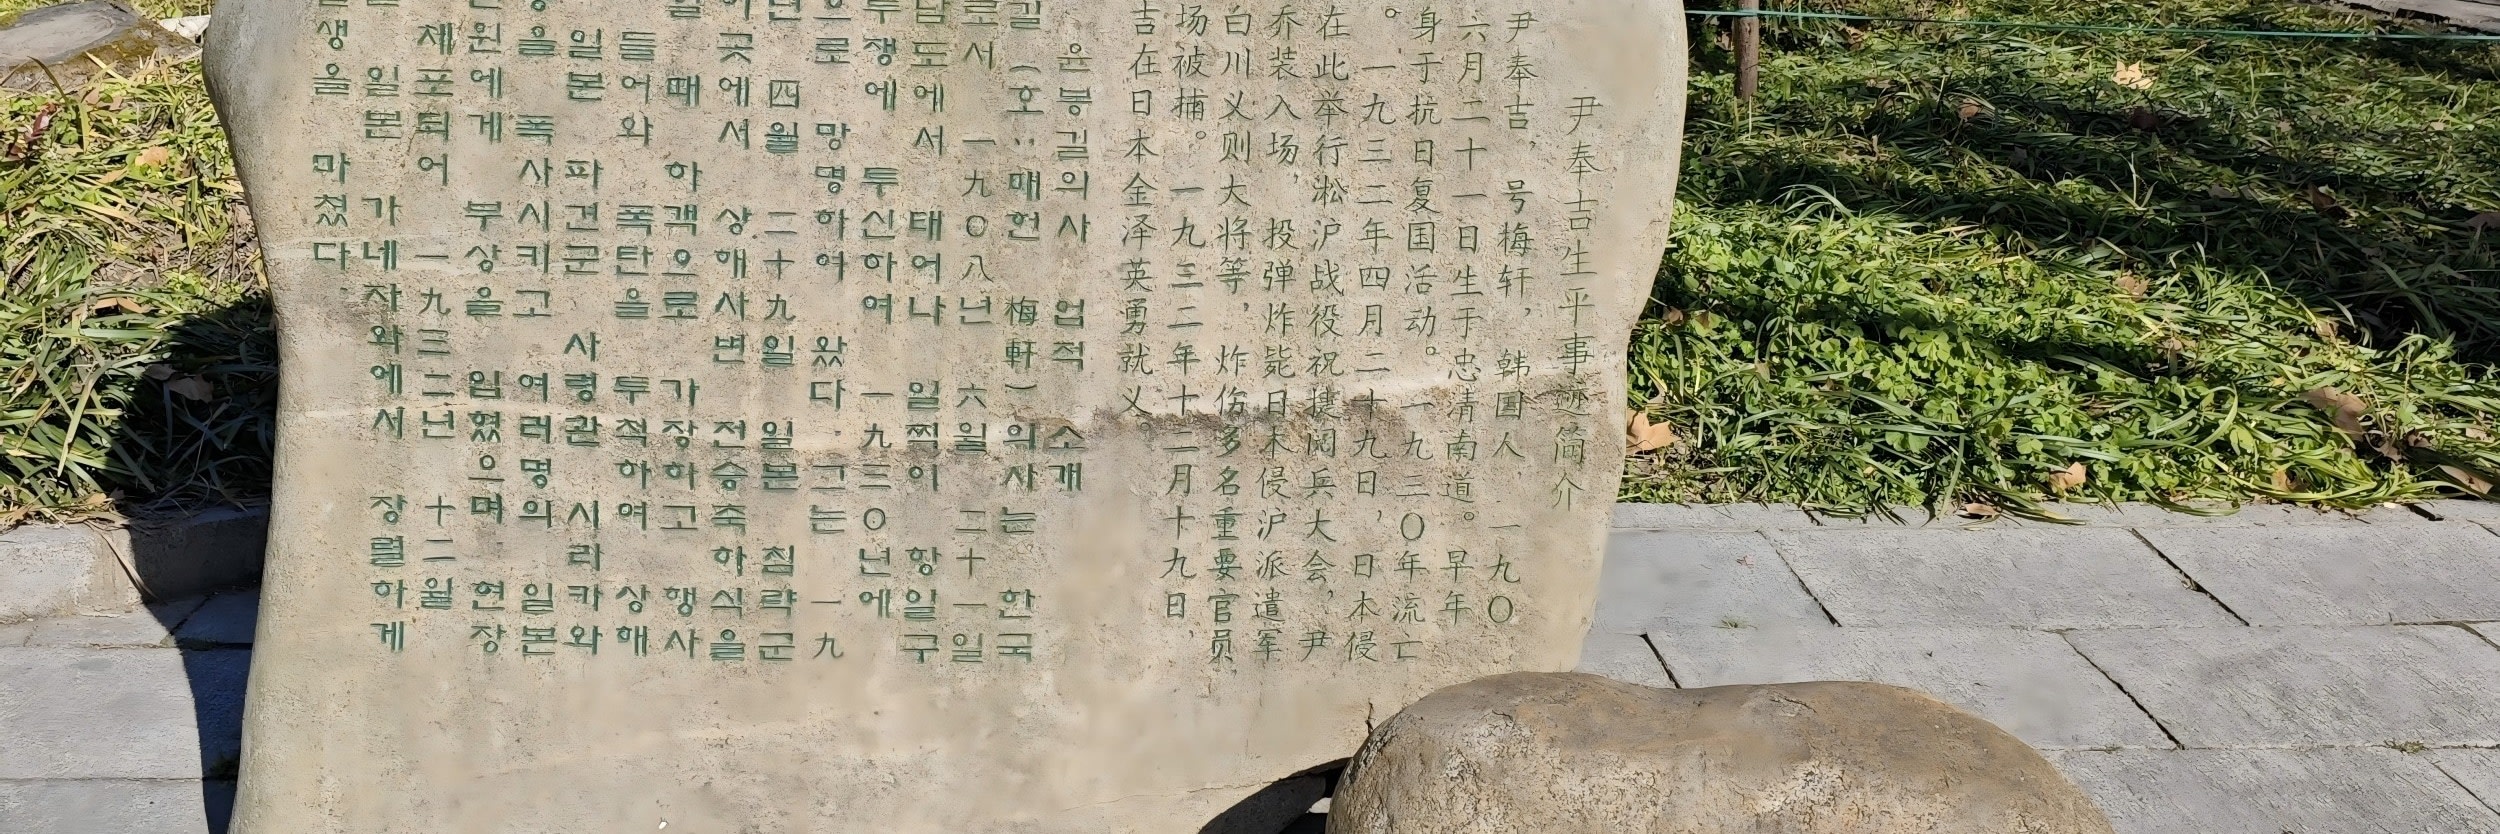 尹奉吉生平事迹简介
尹奉吉，号梅轩，韩国人，一九〇
六月二十一日生于忠清南道。早年
身于抗日复国活动。一九三〇年流亡
。一九三二年四月二十九日，日本侵
在此举行淞沪战役祝捷阅兵大会，尹
乔装入场，投弹炸毙日本侵沪派遣军
白川义则大将等，炸伤多名重要官员，
场被捕。一九三二年十二月十九日，
吉在日本金泽英勇就义。
윤봉길의사 업적 소개
길(호:매헌 梅軒)의사는 한국
로서 一九〇八년 六월 二十一일
남도에서 태어나 일찍이 항일구
투쟁에 투신하여 一九三〇년에
으로 망명하여 왔다. 그는 一九
년 四월 二十九일 일본 침략군
곳에서 상해사변 전승축하식을
때 하객으로 가장하고 행사
들어와 폭탄을 투척하여 상해
일본 파견군 사령관 시라카와
을 폭사시키고 여러명의 일본
원에게 부상을 입혔으며 현장
체포되어 一九三二년 十二월
일본 가네자와에서 장렬하게
생을 마쳤다.